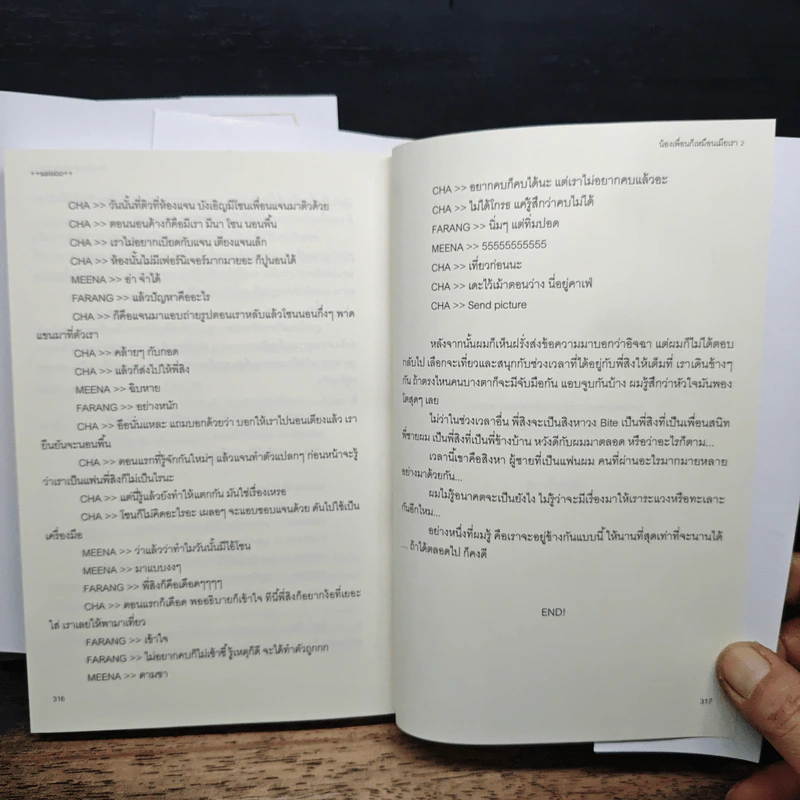 CHA >> วันนั้นที่ติวที่ห้องแจน บังเอิญมีโซนเพื่อนแจนมาติวด้วย
CHA >> ตอนนอนค้างก็คือมีเรา มีนา โซน นอนพื้น
CHA >> เราไม่อยากเบียดกับแจน เตียงแจนเล็ก
CHA >> ห้องนั้นไม่มีเฟอร์นิเจอร์มากมายอะ ก็ปูนอนได้
MEENA >> อ่า จำได้
FARANG >> แล้วปัญหาคืออะไร
CHA >> ก็คือแจนมาแอบถ่ายรูปตอนเราหลับแล้วโซนนอนกึ่งๆ พาด
แขนมาที่ตัวเรา
CHA >> คล้ายๆ กับกอด
CHA >> แล้วก็ส่งไปให้พี่สิง
MEENA >> ฉิบหาย
FARANG >> อย่างหนัก
CHA >> อือนั่นแหละ แถมบอกด้วยว่า บอกให้เราไปนอนเตียงแล้ว เรา
ยืนยันจะนอนพื้น
CHA >> ตอนแรกที่รู้จักกันใหม่ๆ แล้วแจนทำตัวแปลกๆ ก่อนหน้าจะรู้
ว่าเราเป็นแฟนพี่สิงก็ไม่เป็นไรนะ
CHA >> แต่นี่รู้แล้วยังทำให้แตกกัน มันใช่เรื่องเหรอ
CHA >> โซนก็ไม่คิดอะไรอะ เผลอๆ จะแอบชอบแจนด้วย ดันไปใช้เป็น
เครื่องมือ
MEENA >> ว่าแล้วว่าทำไมวันนั้นมีไอ้โซน
MEENA >> มาแบบงงๆ
FARANG >> พี่สิงก็คือเดือดๆๆๆๆ
CHA >> ตอนแรกก็เดือด พออธิบายก็เข้าใจ ทีนี้พี่สิงก็อยากง้อที่เยอะ
ใส่ เราเลยให้พามาเที่ยว
FARANG >> เข้าใจ
FARANG >> ไม่อยากคบก็ไม่เข้าซี้ รู้เหตุก็ดี จะได้ทำตัวถูกกก
MEENA >> ตามชา
316
น้องเพื่อนก็เหมือนเมียเรา 2
CHA >> อยากคบก็คบได้นะ แต่เราไม่อยากคบแล้วอะ
CHA >> ไม่ได้โกรธ แค่รู้สึกว่าคบไม่ได้
FARANG >> นิ่มๆ แต่ทิ่มปอด
MEENA >> 55555555555
CHA >> เที่ยวก่อนนะ
CHA >> เดะไว้เม้าตอนว่าง นี่อยู่คาเฟ่
CHA >> Send picture
หลังจากนั้นผมก็เห็นฝรั่งส่งข้อความมาบอกว่าอิจฉา แต่ผมก็ไม่ได้ตอบ
กลับไป เลือกจะเที่ยวและสนุกกับช่วงเวลาที่ได้อยู่กับพี่สิงให้เต็มที่ เราเดินข้างๆ
กัน ถ้าตรงไหนคนบางตาก็จะมีจับมือกัน แอบจูบกันบ้าง ผมรู้สึกว่าหัวใจมันพอง
โตสุดๆ เลย
ไม่ว่าในช่วงเวลาอื่น พี่สิงจะเป็นสิงหาวง Bite เป็นพี่สิงที่เป็นเพื่อนสนิท
พี่ชายผม เป็นพี่สิงที่เป็นพี่ข้างบ้าน หวังดีกับผมมาตลอด หรือว่าอะไรก็ตาม...
เวลานี้เขาคือสิงหา ผู้ชายที่เป็นแฟนผม คนที่ผ่านอะไรมากมายหลาย
อย่างมาด้วยกัน...
ผมไม่รู้อนาคตจะเป็นยังไง ไม่รู้ว่าจะมีเรื่องมาให้เราระแวงหรือทะเลาะ
กันอีกไหม...
อย่างหนึ่งที่ผมรู้ คือเราจะอยู่ข้างกันแบบนี้ ให้นานที่สุดเท่าที่จะนานได้
... ถ้าได้ตลอดไป ก็คงดี
END!
317